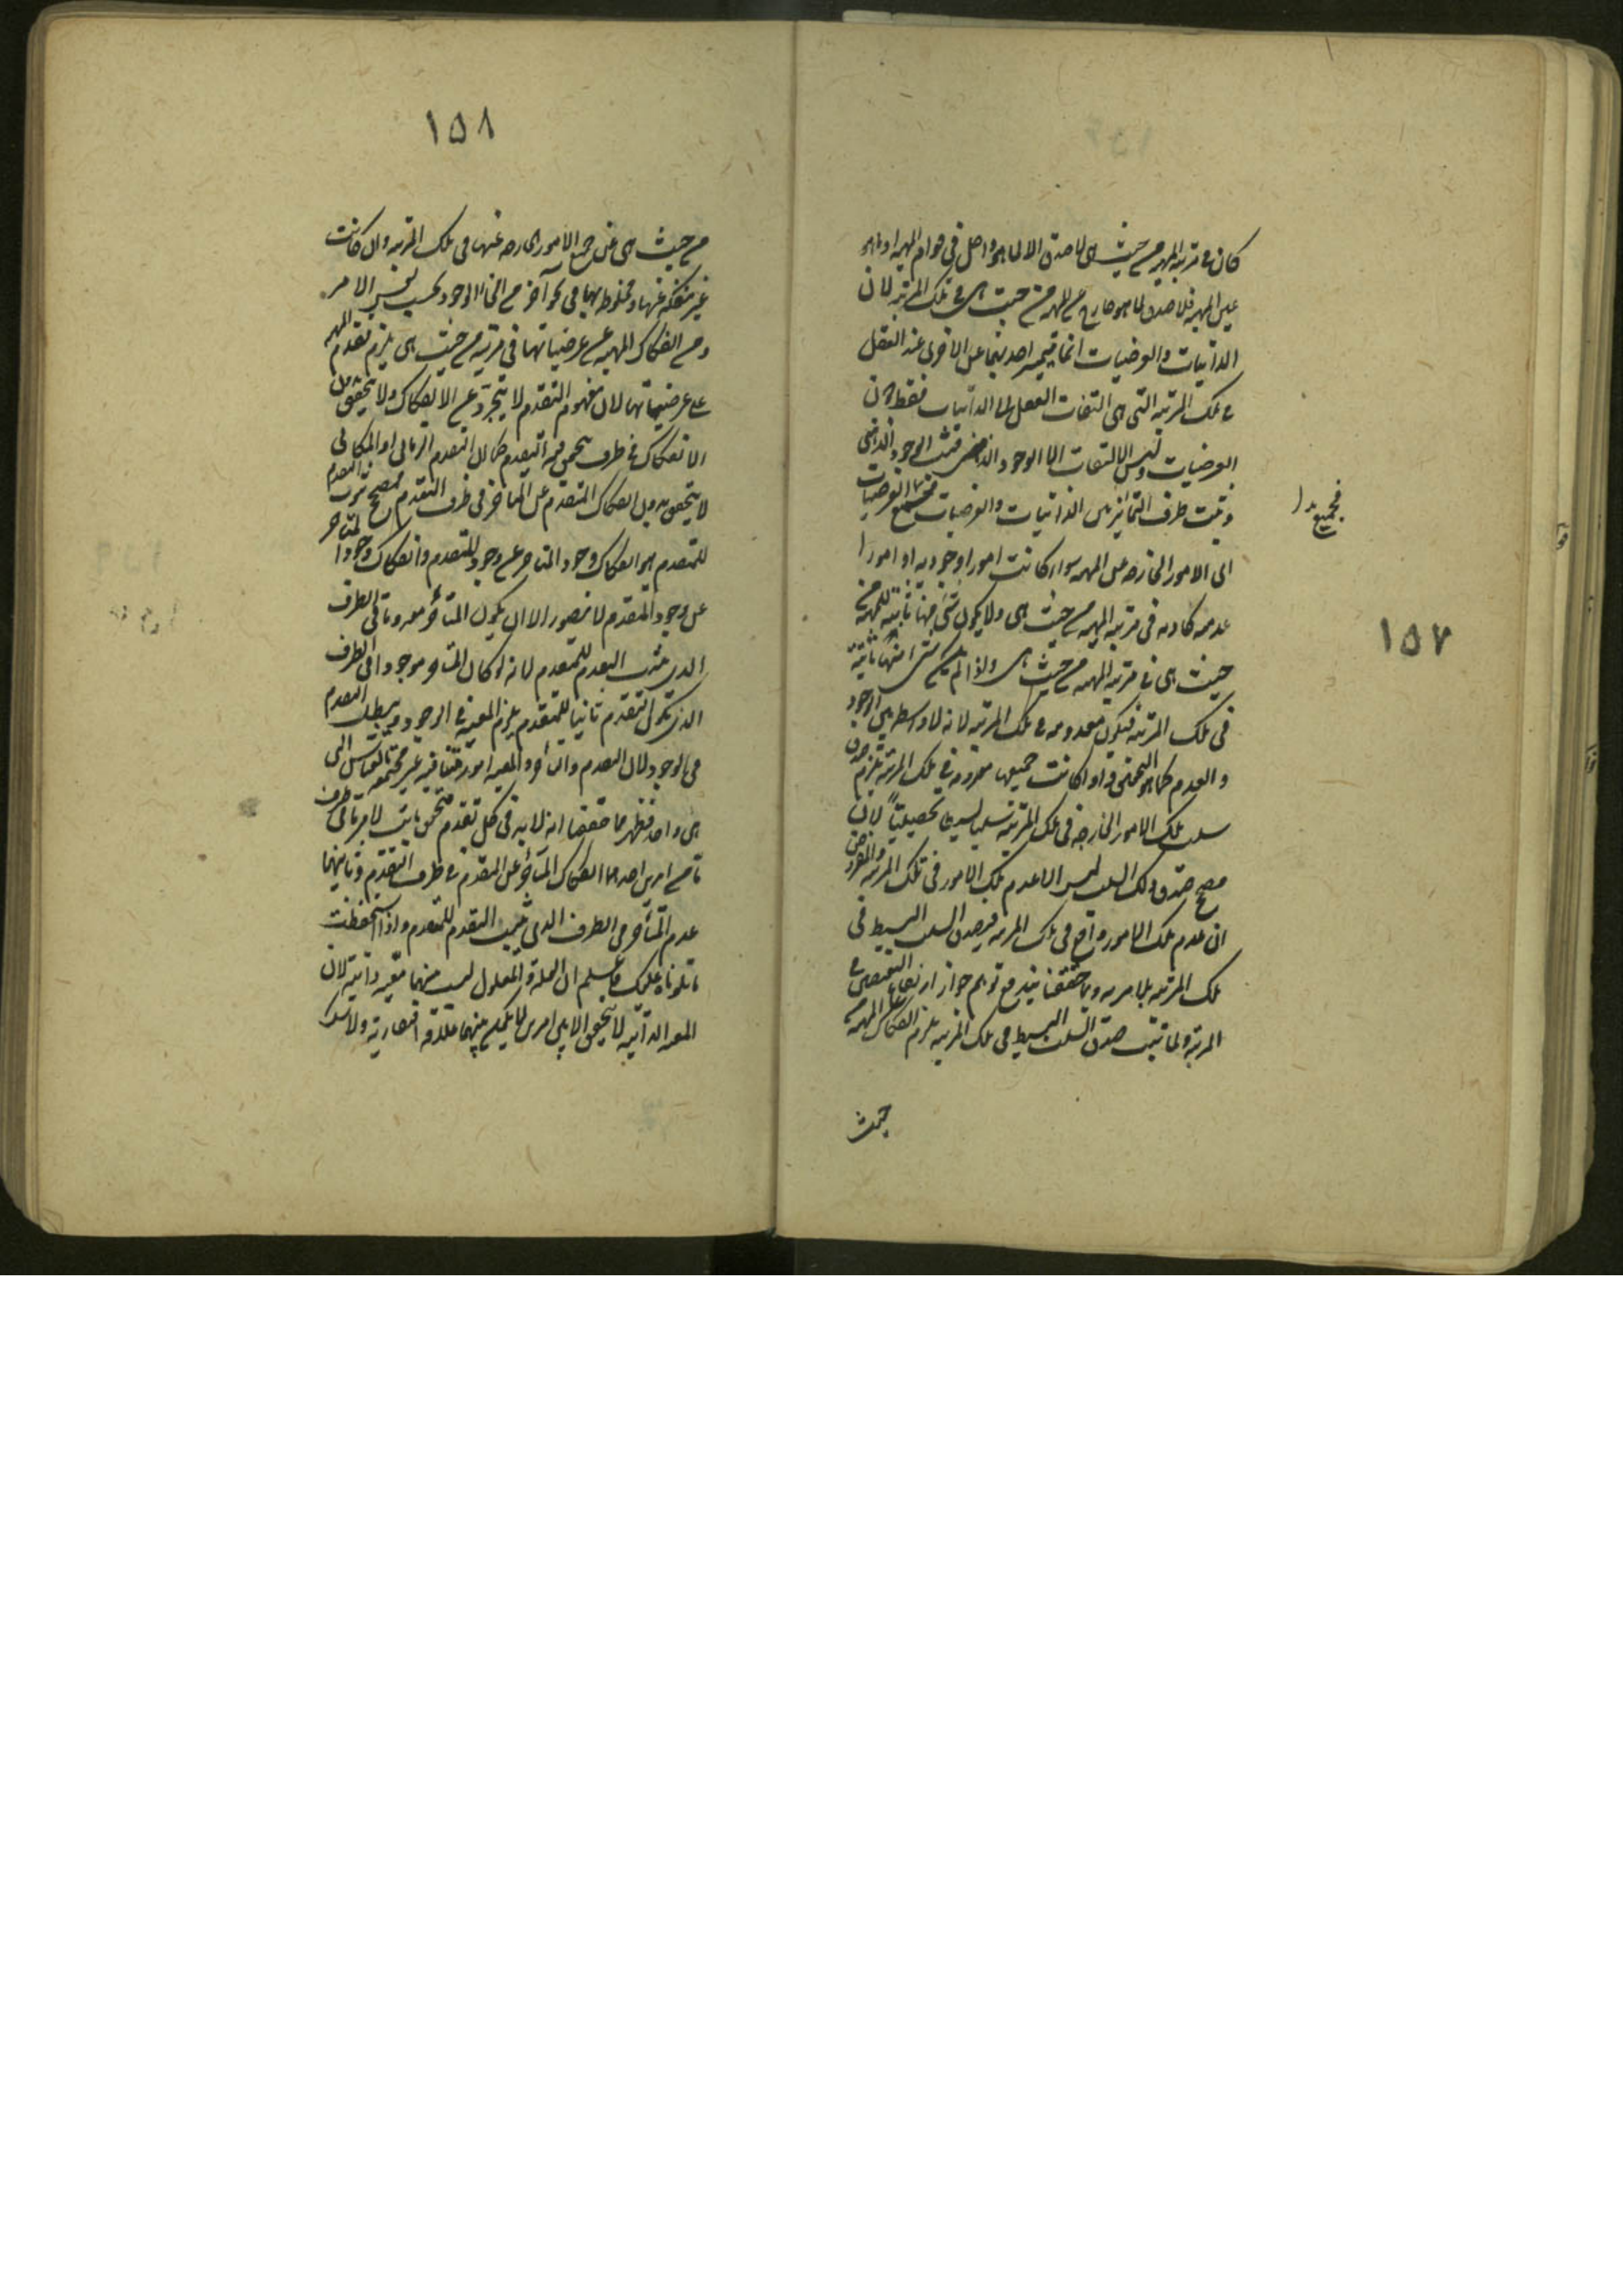 ١٥٧
كان فى مرتبة المهية من حيث هى لا صدق الا لما هو داخل فى قوام المهية او ما هو
عين المهية فلا صدق لما هو خارج عن المهية من حيث هى فى تلك المرتبة لان
الذاتيات والعرضيات انما تميز احديهما عن الاخرى عند العقل
فى تلك المرتبة التى هى التفات العقل الى الذاتيات فقط دون
العرضيات وليس الالتفات الا الوجود الذهنى فثبت الوجود الذهنى
وثبت ظرف التمايز بين الذاتيات والعرضيات فجميع العرضيات
فجميع بدل
اى الامور الخارجة عن المهية سواء كانت امورا وجودية او امورا
عدمية كاذبة فى مرتبة المهية من حيث هى ولا يكون شئ منها ثابتة للمهية من
حيث هى فى مرتبة المهية من حيث هى واذا لم يكن شئ منها ثابتة
فى تلك المرتبة فيكون معدومة فى تلك المرتبة لانه لا واسطة بين الوجود
والعدم كما هو التحقيق واذا كانت جميعها معدومة فى تلك المرتبة يلزم صدق
سلب تلك الامور الخارجة فى تلك المرتبة سلبا بسيطا تحصيليا لان
مصحح صدق ذلك السلب ليس الا عدم تلك الامور فى تلك المرتبة والمفروض
ان عدم تلك الامور واقع فى تلك المرتبة فيصدق السلب البسيط فى
تلك المرتبة بلا مرية وبما حققنا يندفع توهم جواز ارتفاع النقيضين فى
المرتبة ولما ثبت صدق السلب البسيط فى تلك المرتبة يلزم انفكاك المهية من
حيث
١٥٨
من حيث هى عن جميع الامور الخارجة عنها فى تلك المرتبة وان كانت
غير منفكة عنها ومخلوطة بها فى نحو آخر من انحاء الوجود بحسب نفس الامر
ومن انفكاك المهية عن عرضياتها فى مرتبة من حيث هى يلزم تقدم المهية
على عرضياتها لان مفهوم التقدم لا يتجرد عن الانفكاك ولا يتحقق بدون
الانفكاك فى ظرف يتحقق فيه التقدم كما ان التقدم الزمانى او المكانى
لا يتحقق بدون انفكاك المتقدم عن المتأخر فى ظرف التقدم فمصحح ثبوت التقدم
للمتقدم هو انفكاك وجود المتأخر عن وجود المتقدم وانفكاك وجود المتأخر
عن وجود المتقدم لا يتصور الا ان يكون المتأخر معدوما فى الظرف
الذى يثبت التقدم للمتقدم لانه لو كان المتأخر موجودا فى الظرف
الذى يكون التقدم ثابتا للمتقدم يلزم المعية فى الوجود ويبطل التقدم
فى الوجود لان التقدم والتأخر والمعية امور متنافية غير مجتمعة بالقياس الى
شئ واحد فظهر مما حققنا انه لا بد فى كل تقدم متحقق ثابت لامر ما فى ظرف
ما من امرين احدهما انفكاك المتأخر عن المتقدم فى ظرف التقدم وثانيهما
عدم المتأخر فى الظرف الذى يثبت التقدم للمتقدم واذا استحفظت
ما تلوناه عليك فاعلم ان العلة والمعلول ليس منهما معية ذاتية لان
المعية الذاتية لا يتحقق الا بين امرين لا يكون بينهما علاقة افتقارية ولا شك